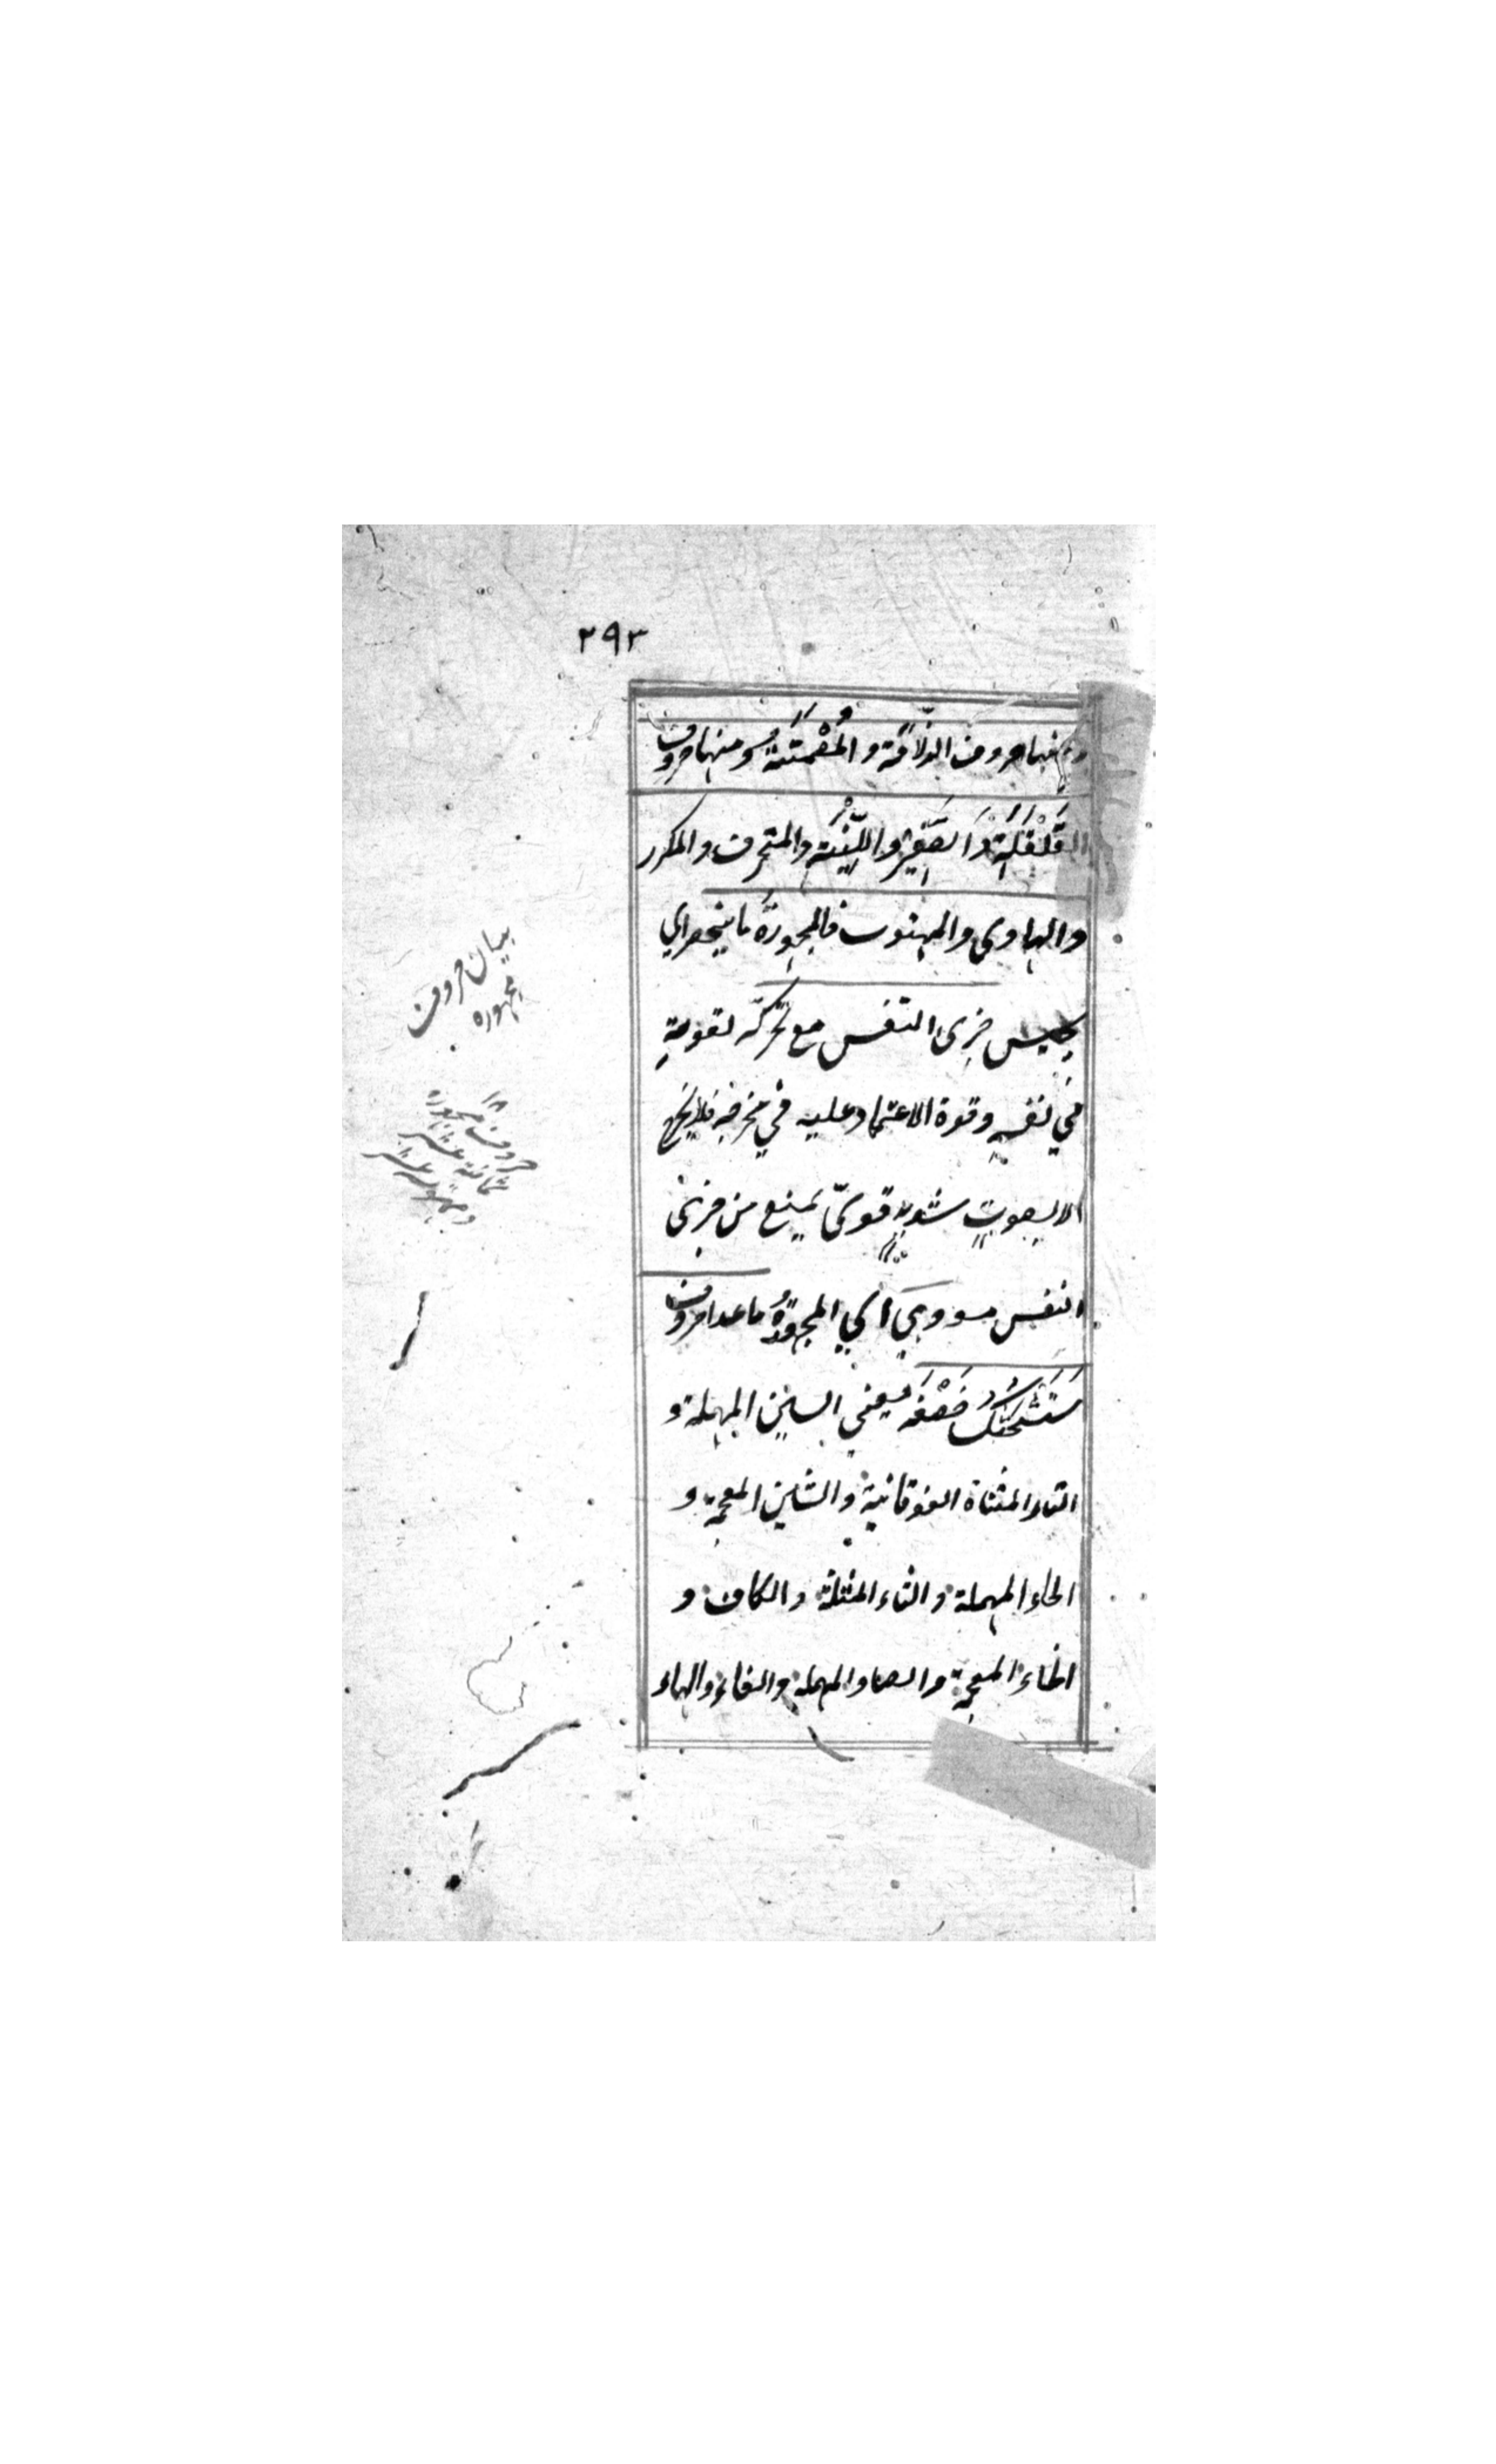 ٢٩٣
ومنها حروف الذلاقة والمُصْمَتَةُ ومنها حروف
القَلْقَلَةِ وَالصَّفِيْرِ واللِّيْنَةِ والمنحرف والمكرر
والهاوى والمهتوت فالمجهورَة ما ينحصر اي
يحبس جرى النفس مع تحركه لقوتهِ
في نفسهِ وقوة الاعتماد عليه في مخرجه فلا يخرج
الا بصوتٍ شديدٍ قوىّ يمنع من جرى
النفس معه وهِيَ اي المجهورَةُ ما عدا حروف
سَتَشْحَثُكَ خَصْفَه يعني السين المهملة و
التاء المثناة الفوقانية والشين المعجمة و
الحاء المهملة والثاء المثلثة والكاف و
الخاء المعجمة والصاد المهملة والفاء والهاء
بيان حروف
مجهوره
١٨
حروف مجهوره
ثمانية عشر